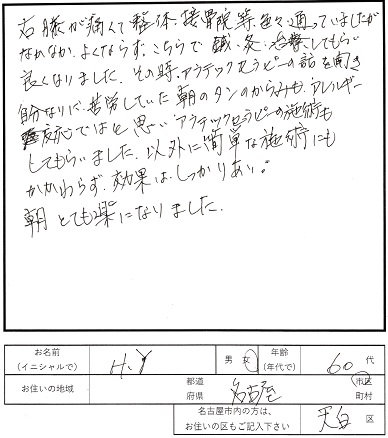 右膝が痛くて整体、接骨院等、色々通っていましたが
なかなか、よくならず、こちらで鍼、灸、治療してもらい
良くなりました。その時、アラテックセラピーの話を聞き
自分なりに苦労していた朝のタンのからみも、アレルギー
反応ではと思い アラテックセラピーの施術も
してもらいました。以外に簡単な施術にも
かかわらず、効果は、しっかりあり。
朝 とても楽になりました。
お名前
(イニシャルで)
H.Y
男 女
年齢
(年代で)
60 代
お住いの地域
都道
府県
名古屋
市区
町村
名古屋市内の方は、
お住いの区もご記入下さい
天白 区